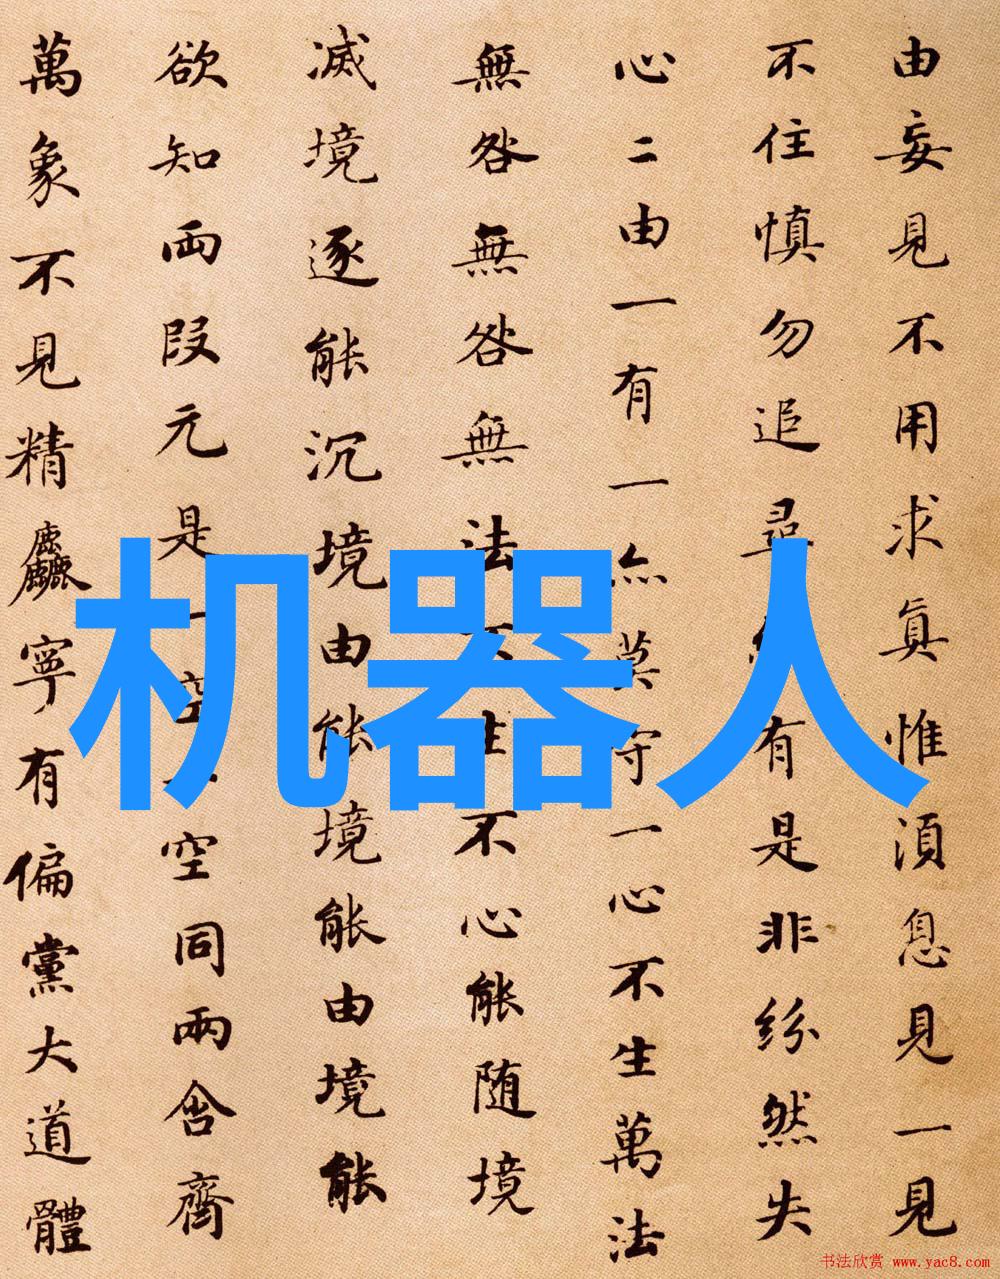 由妄見不用求真惟湏息見一見
不住慎勿追尋有是非紛然失
心二由一有一亦莫守一心不生萬法
無咎無咎無法不生不心能随境
滅境逐能沉境由能境能由境能
欲知兩段元是一空一空同兩含齊
萬象不見精麤寧有偏黨大道體
机器人
书法欣赏 www.yac8.com